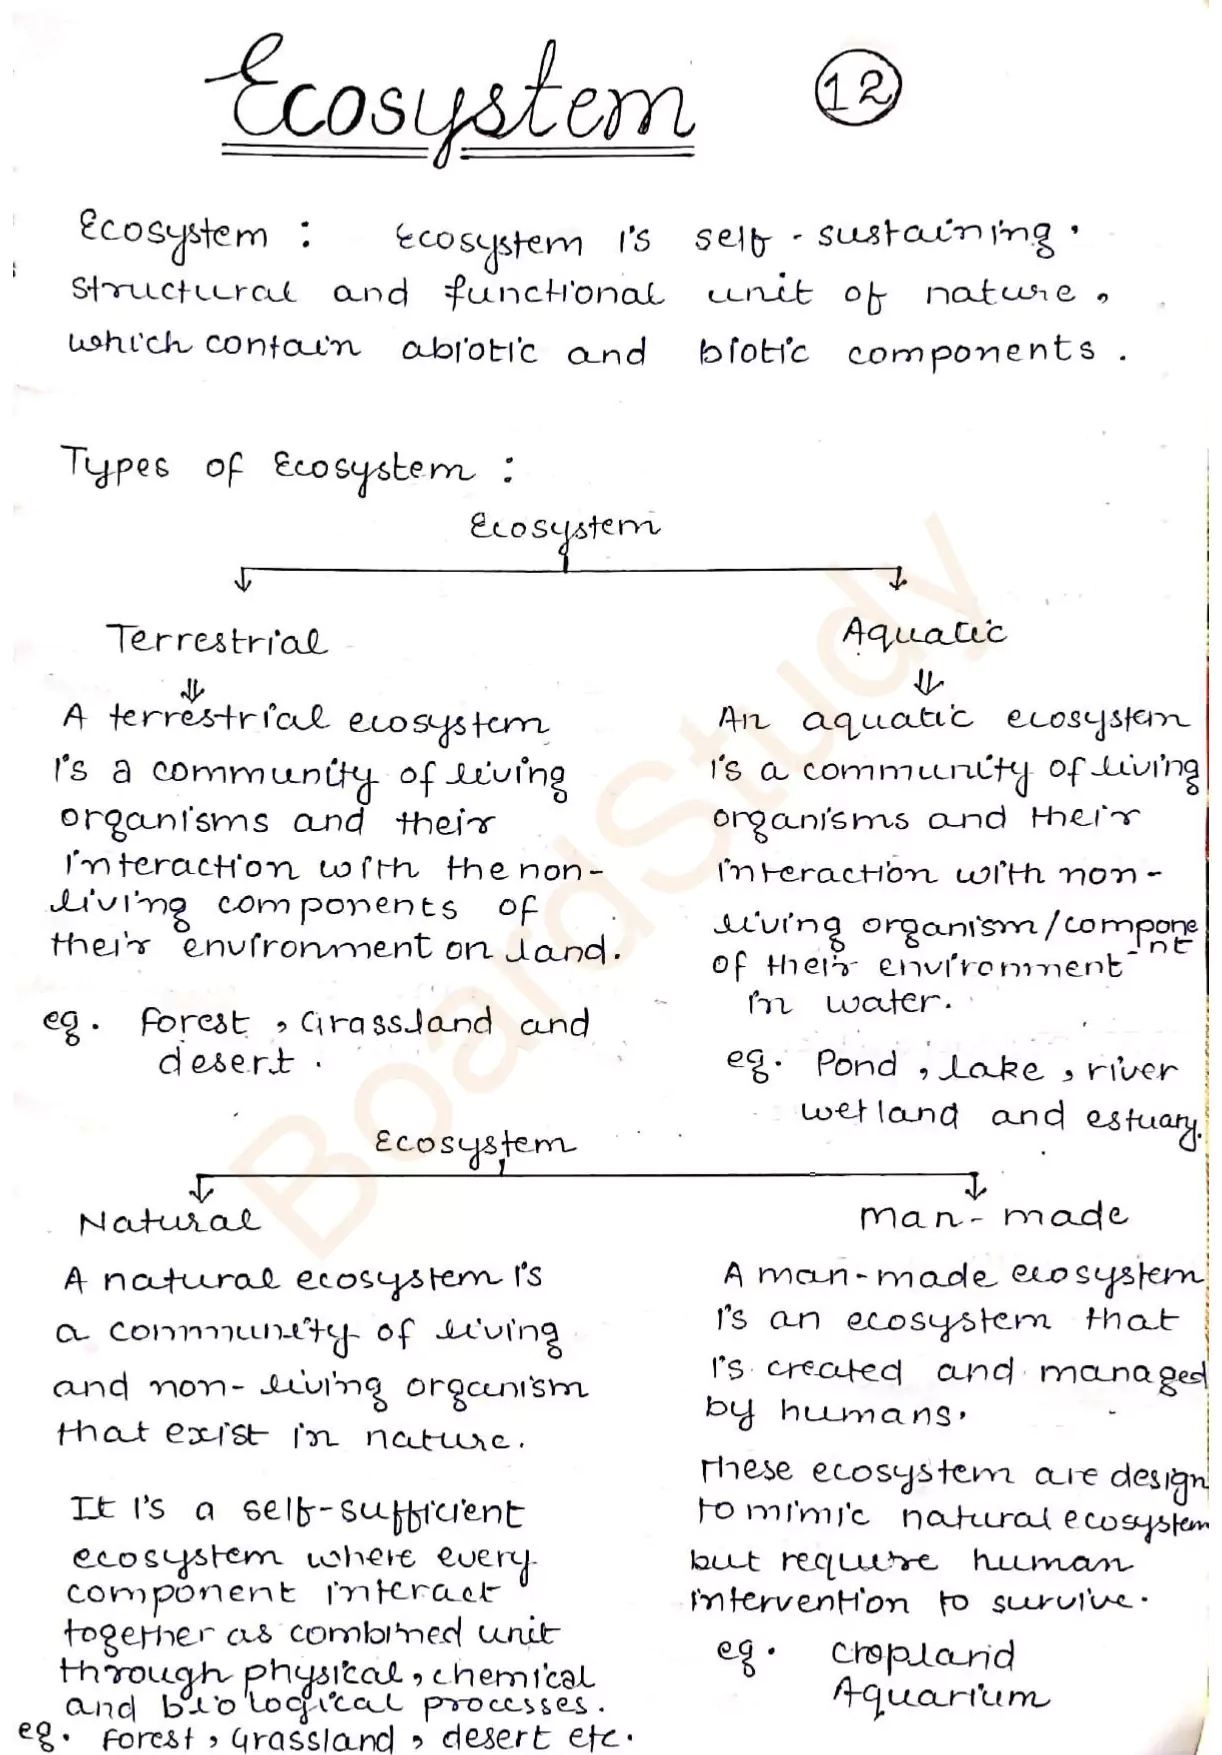 Ecosystem
12
Ecosystem : Ecosystem is self-sustaining.
structural and functional unit of nature,
which contain abiotic and biotic components.
Types of Ecosystem :
Ecosystem
Terrestrial
A terrestrial ecosystem
is a community of living
organisms and their
interaction with the non-
living components of
their environment on land.
eg. Forest, Grassland and
desert.
Aquatic
An aquatic ecosystem
is a community of living
organisms and their
interaction with non-
living organism/compone
-nt
of their environment
in water.
eg. Pond, lake, river
wetland and estuary.
Ecosystem
Natural
A natural ecosystem is
a community of living
and non-living organism
that exist in nature.
It is a self-sufficient
ecosystem where every
component interact
together as combined unit
through physical, chemical
and biological processes.
eg. Forest, Grassland, desert etc.
Man-made
A man-made ecosystem
is an ecosystem that
is created and managed
by humans.
These ecosystem are design
to mimic natural ecosystem
but require human
intervention to survive.
eg. Cropland
Aquarium
BoardStudy